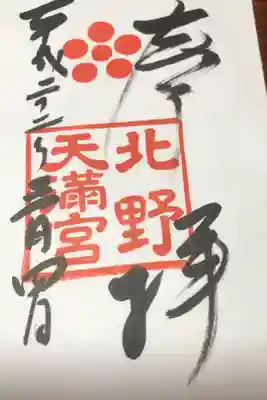 奉拝
北野
天満宮
平成二十二年三月四日